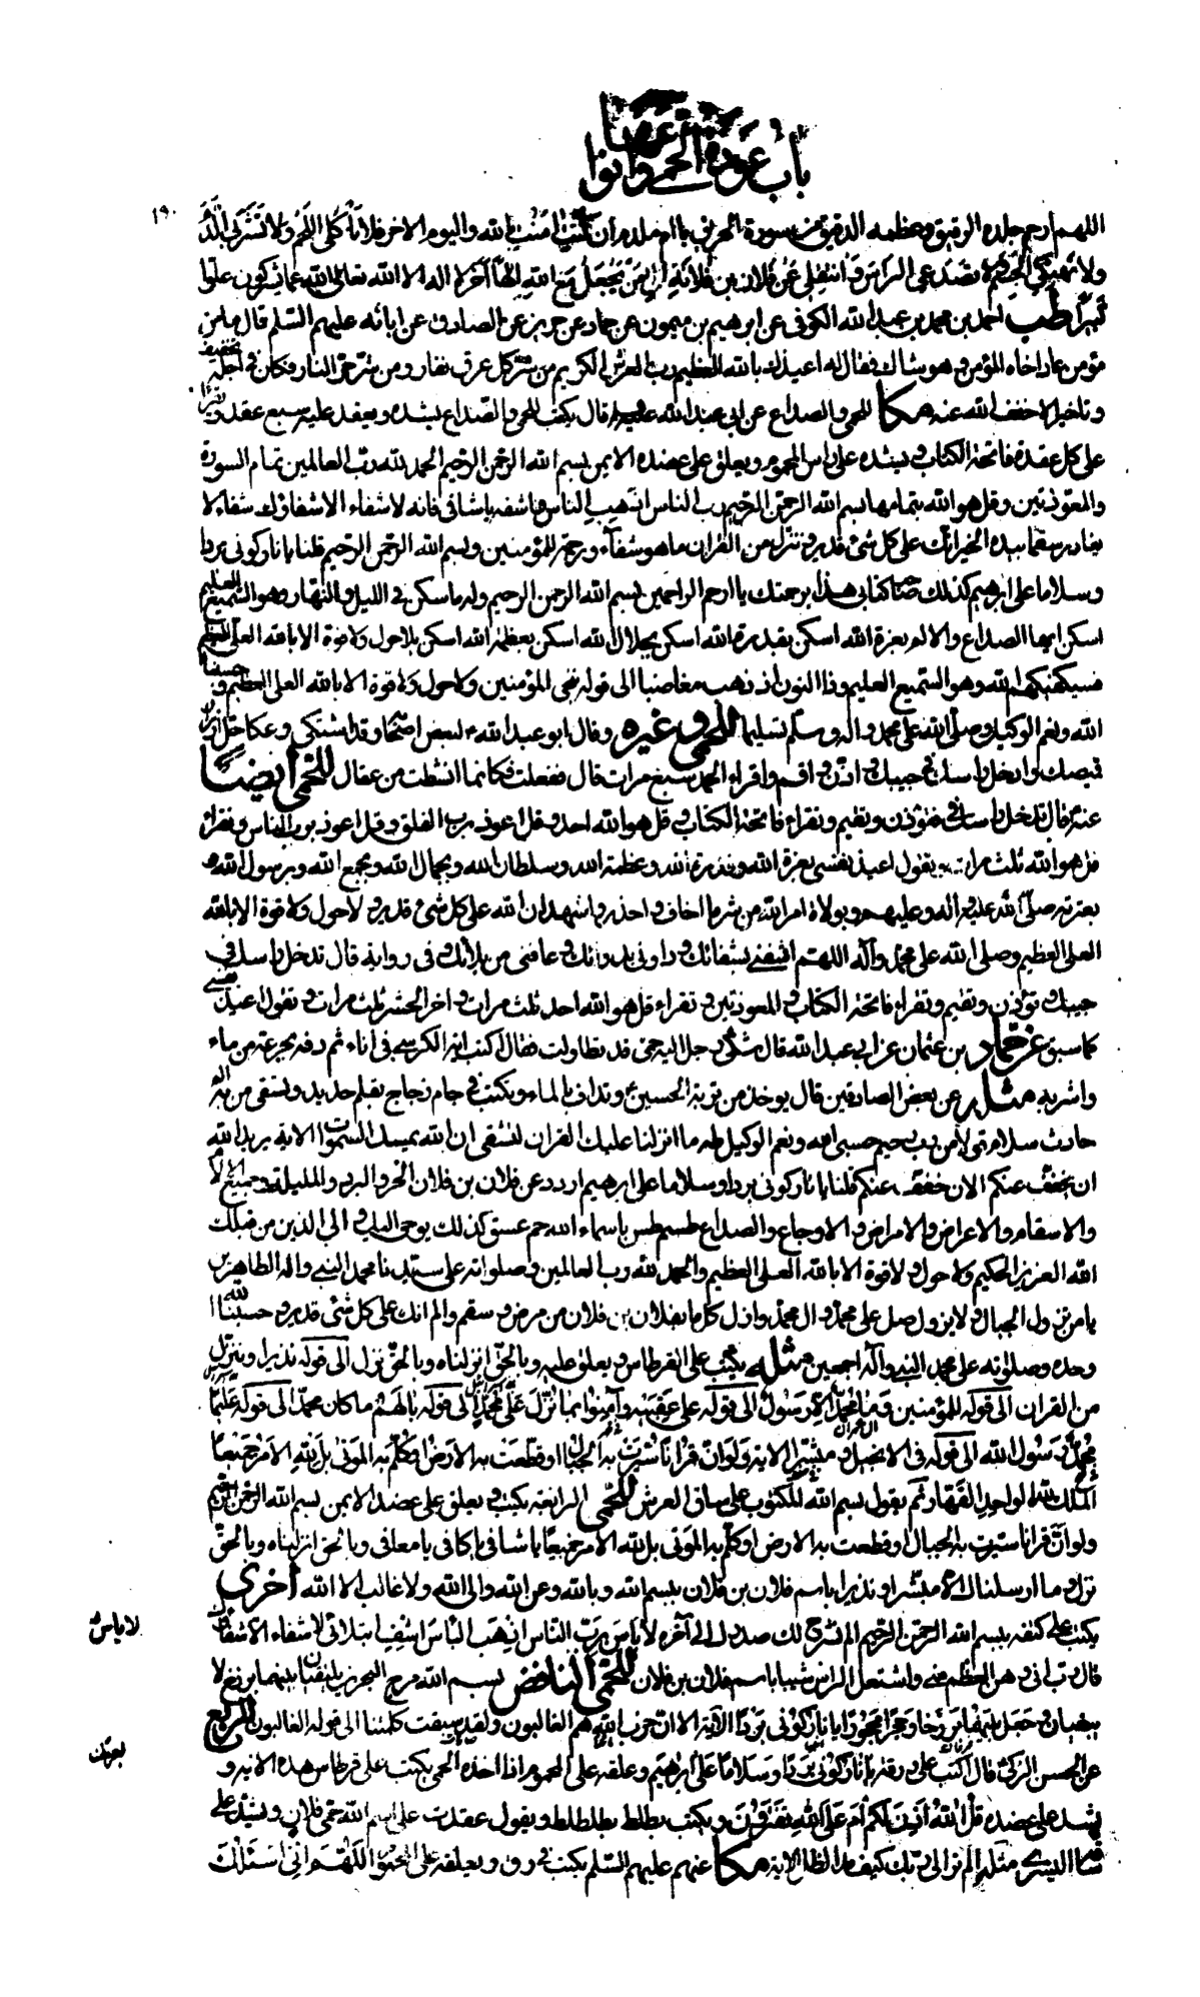 باب عوذة الحمى وانواعها
١٩٠
اللهم ارحم جلده الرقيق وعظمه الدقيق من سورة الحريق يا ام ملدم ان كنت امنت بالله واليوم الاخر فلا تأكلى اللحم ولا تشربى الدم
ولا تنهكى الجسم ولا تصدعى الراس وانتقلى عن فلان بن فلانة الى من يجعل مع الله الها آخر لا اله الا الله تعالى الله عما يشركون علوا
كبيرا طب احمد بن محمد بن عبد الله الكوفى عن ابرهيم بن ميمون عن حماد عن حريز عن الصادق عن ابائه عليهم السّلم قال ما من
مؤمن عاد اخاه المؤمن وهو شاك فقال له اعيذك بالله العظيم رب العرش الكريم من شر كل عرق نفار ومن شر حر النار فكان فى اجله تخفيف
وتاخير الا خفف الله عنه مكا للحمى والصداع عن ابى عبد الله عليه قال يكتب للحمى والصّداع يشده ويعقد عليه سبع عقد ويقرأ
على كل عقدة فاتحة الكتاب ويشده على راس المحموم ويعلق على عضده الايمن بسم الله الرحمن الرحيم الحمد لله رب العالمين تمام السورة
والمعوذتين وقل هو الله بتمامها بسم الله الرحمن الرحيم رب الناس اذهب الناس واشفه يا شافى فانه لا شفاء الا شفاؤك شفاء لا
يغادر سقما بيده الخير انك على كل شئ قدير وننزل من القران ما هو شفاء ورحمة للمؤمنين وبسم الله الرحمن الرحيم قلنا يا نار كونى بردا
وسلاما على ابرهيم كذلك كتابى هذا برحمتك يا ارحم الراحمين بسم الله الرحمن الرحيم وله ما سكن فى الليل والنهار وهو السّميع العليم
اسكن ايها الصداع والالم بعزة الله اسكن بقدرة الله اسكن بجلال الله اسكن بعظمة الله اسكن بلا حول ولا قوة الا بالله العلى العظيم
فسيكفيكهم الله وهو السّميع العليم وذا النون اذ ذهب مغاضبا الى قوله ننجى المؤمنين ولا حول ولا قوة الا بالله العلى العظيم وحسبنا
الله ونعم الوكيل وصلّى الله على محمد واله وسلّم تسليما للحمى وغيره وقال ابو عبد الله لبعض اصحابه وقد اشتكى وعكا حل ازرار
قميصك وادخل راسك فى جيبك واذن واقم واقراء الحمد سبع مرات قال ففعلت فكانما انشطت من عقال للحمى ايضا
عنه قال تدخل راسك فى وتؤذن وتقيم وتقراء فاتحة الكتاب وقل هو الله احد وقل اعوذ برب الفلق وقل اعوذ برب الناس وتقراء
قل هو الله ثلث مرات وتقول اعيذ نفسى بعزة الله وقدرة الله وعظمة الله وسلطان الله وبجمال الله وبجمع الله وبرسول الله
بعترته صلى الله عليه واله وعليهم وبولاة امر الله من شر ما اخاف واحذر واشهد ان الله على كل شئ قدير ولا حول ولا قوة الا بالله
العلى العظيم وصلى الله على محمد وآله اللهم اشفنى بشفائك وداونى بدوائك وعافنى من بلائك وفى رواية قال تدخل راسك فى
جيبك وتؤذن وتقيم وتقراء فاتحة الكتاب والمعوذتين وتقراء قل هو الله احد ثلث مرات واخر الحشر ثلث مرات وتقول اعيذ نفسى
كما سبق عن حماد بن عثمان عن ابى عبد الله قال شكى رجل اليه حمى قد تطاولت فقال اكتب اية الكرسى فى اناء ثم دفه بجرعة من ماء
واشربه مثله عن بعض الصادقين قال يوخذ من تربة الحسين وتداف بالماء ويكتب فى جام زجاج بقلم حديد ويسقى من به
حادث سلام قولا من رب رحيم حسبى الله ونعم الوكيل طه ما انزلنا عليك القران لتشقى ان الله يمسك السّموات الاية يريد الله
ان يخفف عنكم الان خفف عنكم قلنا يا نار كونى بردا وسلاما على ابرهيم اردد عن فلان بن فلان الحر والبرد والمليلة وجميع الآلام
والاسقام والاعراض والامراض والاوجاع والصداع طسم طس باسماء الله حم عسق كذلك يوحى اليك والى الذين من قبلك
الله العزيز الحكيم ولا حول ولا قوة الا بالله العلى العظيم والحمد لله رب العالمين وصلواته على سيدنا محمد النبى واله الطاهرين
يا من تزول الجبال ولا يزول صل على محمد وال محمد وازل كل ما بفلان بن فلان من مرض وسقم والم انك على كل شئ قدير وحسبنا الله
وحده وصلواته على محمد النبى وآله اجمعين مثله يكتب على القرطاس ويعلق عليه وبالحق انزلناه وبالحق نزل الى قوله نذيرا وننزل
من القران الى قوله للمؤمنين وما محمد الا رسول الى قوله على عقبيه وآمنوا بما نزّل على محمد الى قوله بالهم ما كان محمد الى قوله عليما
محمد رسول الله الى قوله فى الانجيل ومبشرا الاية ولو ان قرانا سيرت به الجبال او قطعت به الارض او كلم به الموتى بل لله الامر جميعا
الملك لله الواحد القهار ثم يقول بسم الله المكتوب على ساق العرش للحمى الرابعة يكتب ويعلق على عضد الايمن بسم الله الرحمن الرحيم
ولو ان قرانا سيرت به الجبال او قطعت به الارض او كلم به الموتى بل لله الامر جميعا يا شافى يا كافى يا معافى وبالحق انزلناه وبالحق
نزل وما ارسلناك الا مبشرا ونذيرا باسم فلان بن فلان بسم الله وبالله وعن الله والى الله ولا غالب الا الله اخرى
يكتب على كتفه بسم الله الرحمن الرحيم الم نشرح لك صدرك الى آخره لا باس برب الناس اذهب الباس اشف لا شفاء الا شفاؤك
لا باس
قال رب انى وهن العظم منى واشتعل الراس شيبا باسم فلان بن فلان للحمى النافض بسم الله مرج البحرين يلتقيان بينهما برزخ لا
يبغيان وجعل بينهما برزخا وحجرا محجورا يا نار كونى بردا الآية الا ان حزب الله هم الغالبون ولقد سبقت كلمتنا الى قوله الغالبون للربع
عن الحسن الزكى قال اكتب على ورقة يا نار كونى بردا وسلاما على ابرهيم وعلقه على المحموم اذا اخذه الحمى يكتب على قرطاس هذه الاية و
يشد على عضده قل الله اذن لكم ام على الله تفترون ويكتب بطلط بطلطلط ويقول عقدت على اسم الله حمى فلان ويشد على
ساقه اليسرى مثله الم تر الى ربك كيف مد الظل الاية مكا عنهم عليهم السّلم يكتب فى رق ويعلقه على المحموم اللّهم انى اسئلك